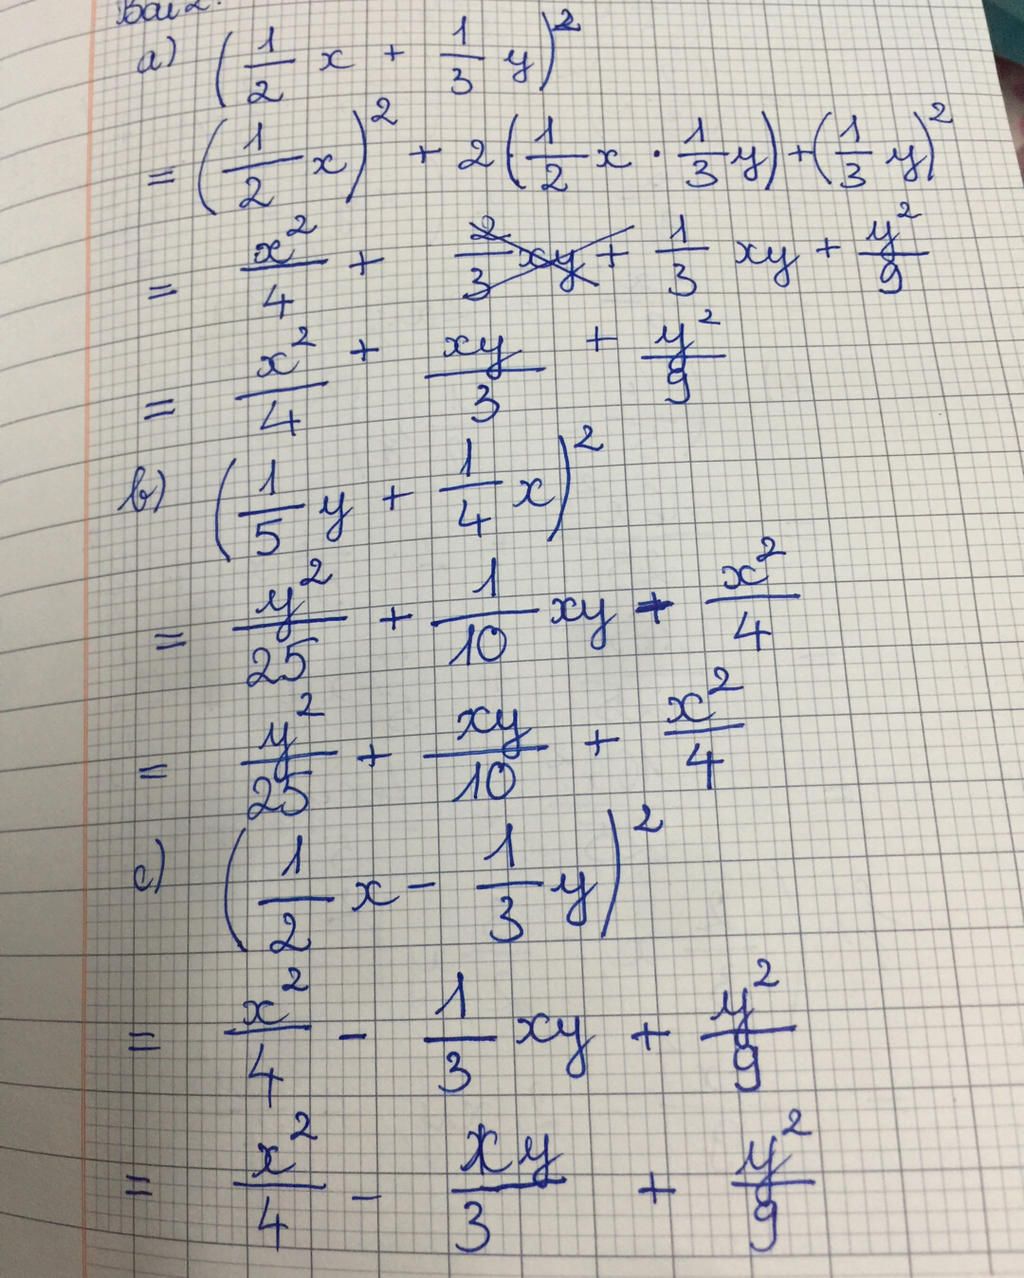 Bài 2:
a) (1/2 x + 1/3 y)²
= (1/2 x)² + 2(1/2 x · 1/3 y) + (1/3 y)²
= x²/4 + 2/3 xy + 1/3 xy + y²/9
= x²/4 + xy/3 + y²/9
b) (1/5 y + 1/4 x)²
= y²/25 + 1/10 xy + x²/4
= y²/25 + xy/10 + x²/4
c) (1/2 x - 1/3 y)²
= x²/4 - 1/3 xy + y²/9
= x²/4 - xy/3 + y²/9